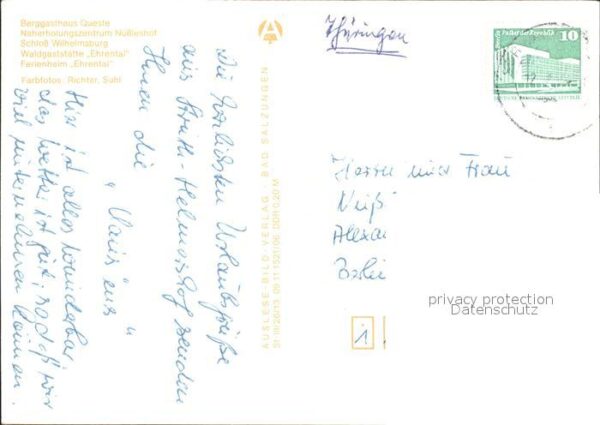 Berggasthaus Queste
Naherholungszentrum Nüßleshof
Schloß Wilhelmsburg
Waldgaststätte „Ehrental"
Ferienheim „Ehrental"
Farbfotos: Richter, Suhl
Die herzlichsten Urlaubsgrüße
aus Struth-Helmershof senden
Ihnen die
„Maiers"
Hier ist alles wunderbar,
das Wetter ist gut, sodaß wir
viel unternehmen können.
AUSLESE-BILD-VERLAG · BAD SALZUNGEN
DDR 0,20 M
Thüringen
Palast der Republik
10
Herrn und Frau
Alexan
Berlin
privacy protection
Datenschutz